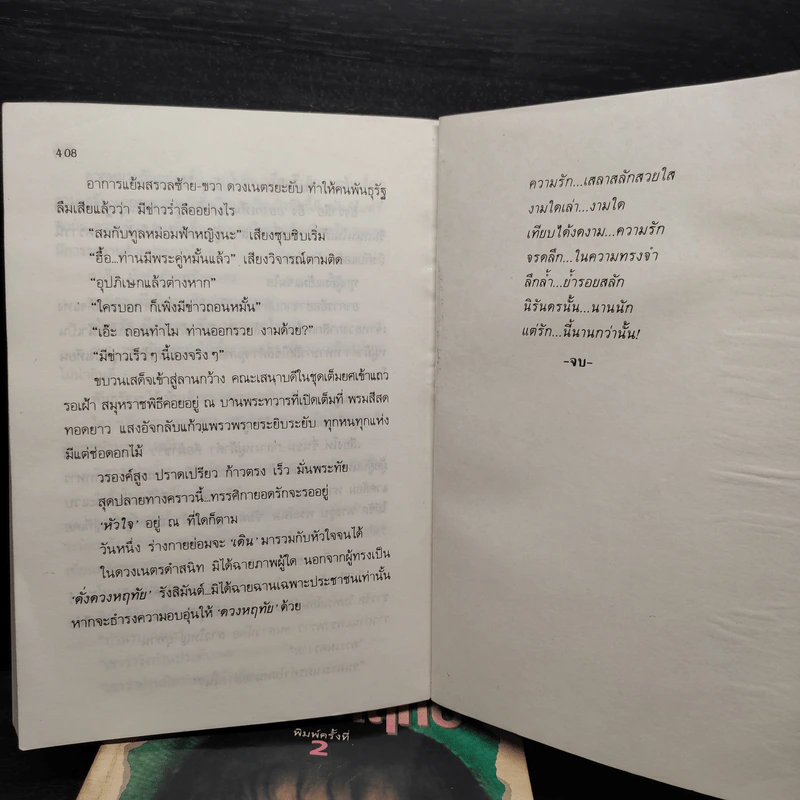 408
อาการแย้มสรวลซ้าย-ขวา ดวงเนตรยะยับ ทำให้คนพันธุรัฐ
ลืมเสียแล้วว่า มีข่าวร่ำลืออย่างไร
“สมกับทูลหม่อมฟ้าหญิงนะ” เสียงซุบซิบเริ่ม
“ฮื้อ...ท่านมีพระคู่หมั้นแล้ว” เสียงวิจารณ์ตามติด
“อุปภิเษกแล้วต่างหาก”
“ใครบอก ก็เพิ่งมีข่าวถอนหมั้น”
“เอ๊ะ ถอนทำไม ท่านออกรวย งามด้วย?”
“มีข่าวเร็ว ๆ นี้เองจริง ๆ”
ขบวนเสด็จเข้าสู่ลานกว้าง คณะเสนาบดีในชุดเต็มยศเข้าแถว
รอเฝ้า สมุหราชพิธีคอยอยู่ ณ บานพระทวารที่เปิดเต็มที่ พรมสีสด
ทอดยาว แสงอัจกลับแก้วแพรวพรายระยิบระยับ ทุกหนทุกแห่ง
มีแต่ช่อดอกไม้
วรองค์สูง ปราดเปรียว ก้าวตรง เร็ว มั่นพระทัย
สุดปลายทางคราวนี้...ทรรศิกายอดรักจะรออยู่
‘หัวใจ’ อยู่ ณ ที่ใดก็ตาม
วันหนึ่ง ร่างกายย่อมจะ ‘เดิน’ มารวมกับหัวใจจนได้
ในดวงเนตรดำสนิท มิได้ฉายภาพผู้ใด นอกจากผู้ทรงเป็น
‘ดั่งดวงหฤทัย’ รังสิมันต์...มิได้ฉายฉานเฉพาะประชาชนเท่านั้น
หากจะธำรงความอบอุ่นให้ ‘ดวงหฤทัย’ ด้วย
ความรัก...เสลาสลักสวยใส
งามใดเล่า...งามใด
เทียบได้งดงาม...ความรัก
จรดลึก...ในความทรงจำ
ลึกล้ำ...ย้ำรอยสลัก
นิรันดรนั้น...นานนัก
แต่รัก...นี้นานกว่านั้น!
-จบ-
พิมพ์ครั้งที่
2